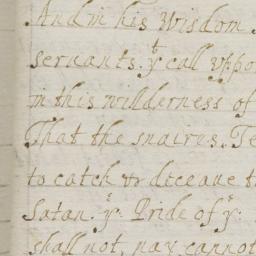 And in his Wisdom
servants yt call vppo
in this willderness of
That the snaires. Te
to catch or deceaue t
Satan. ye Pride of ye
shall not, nay cannot